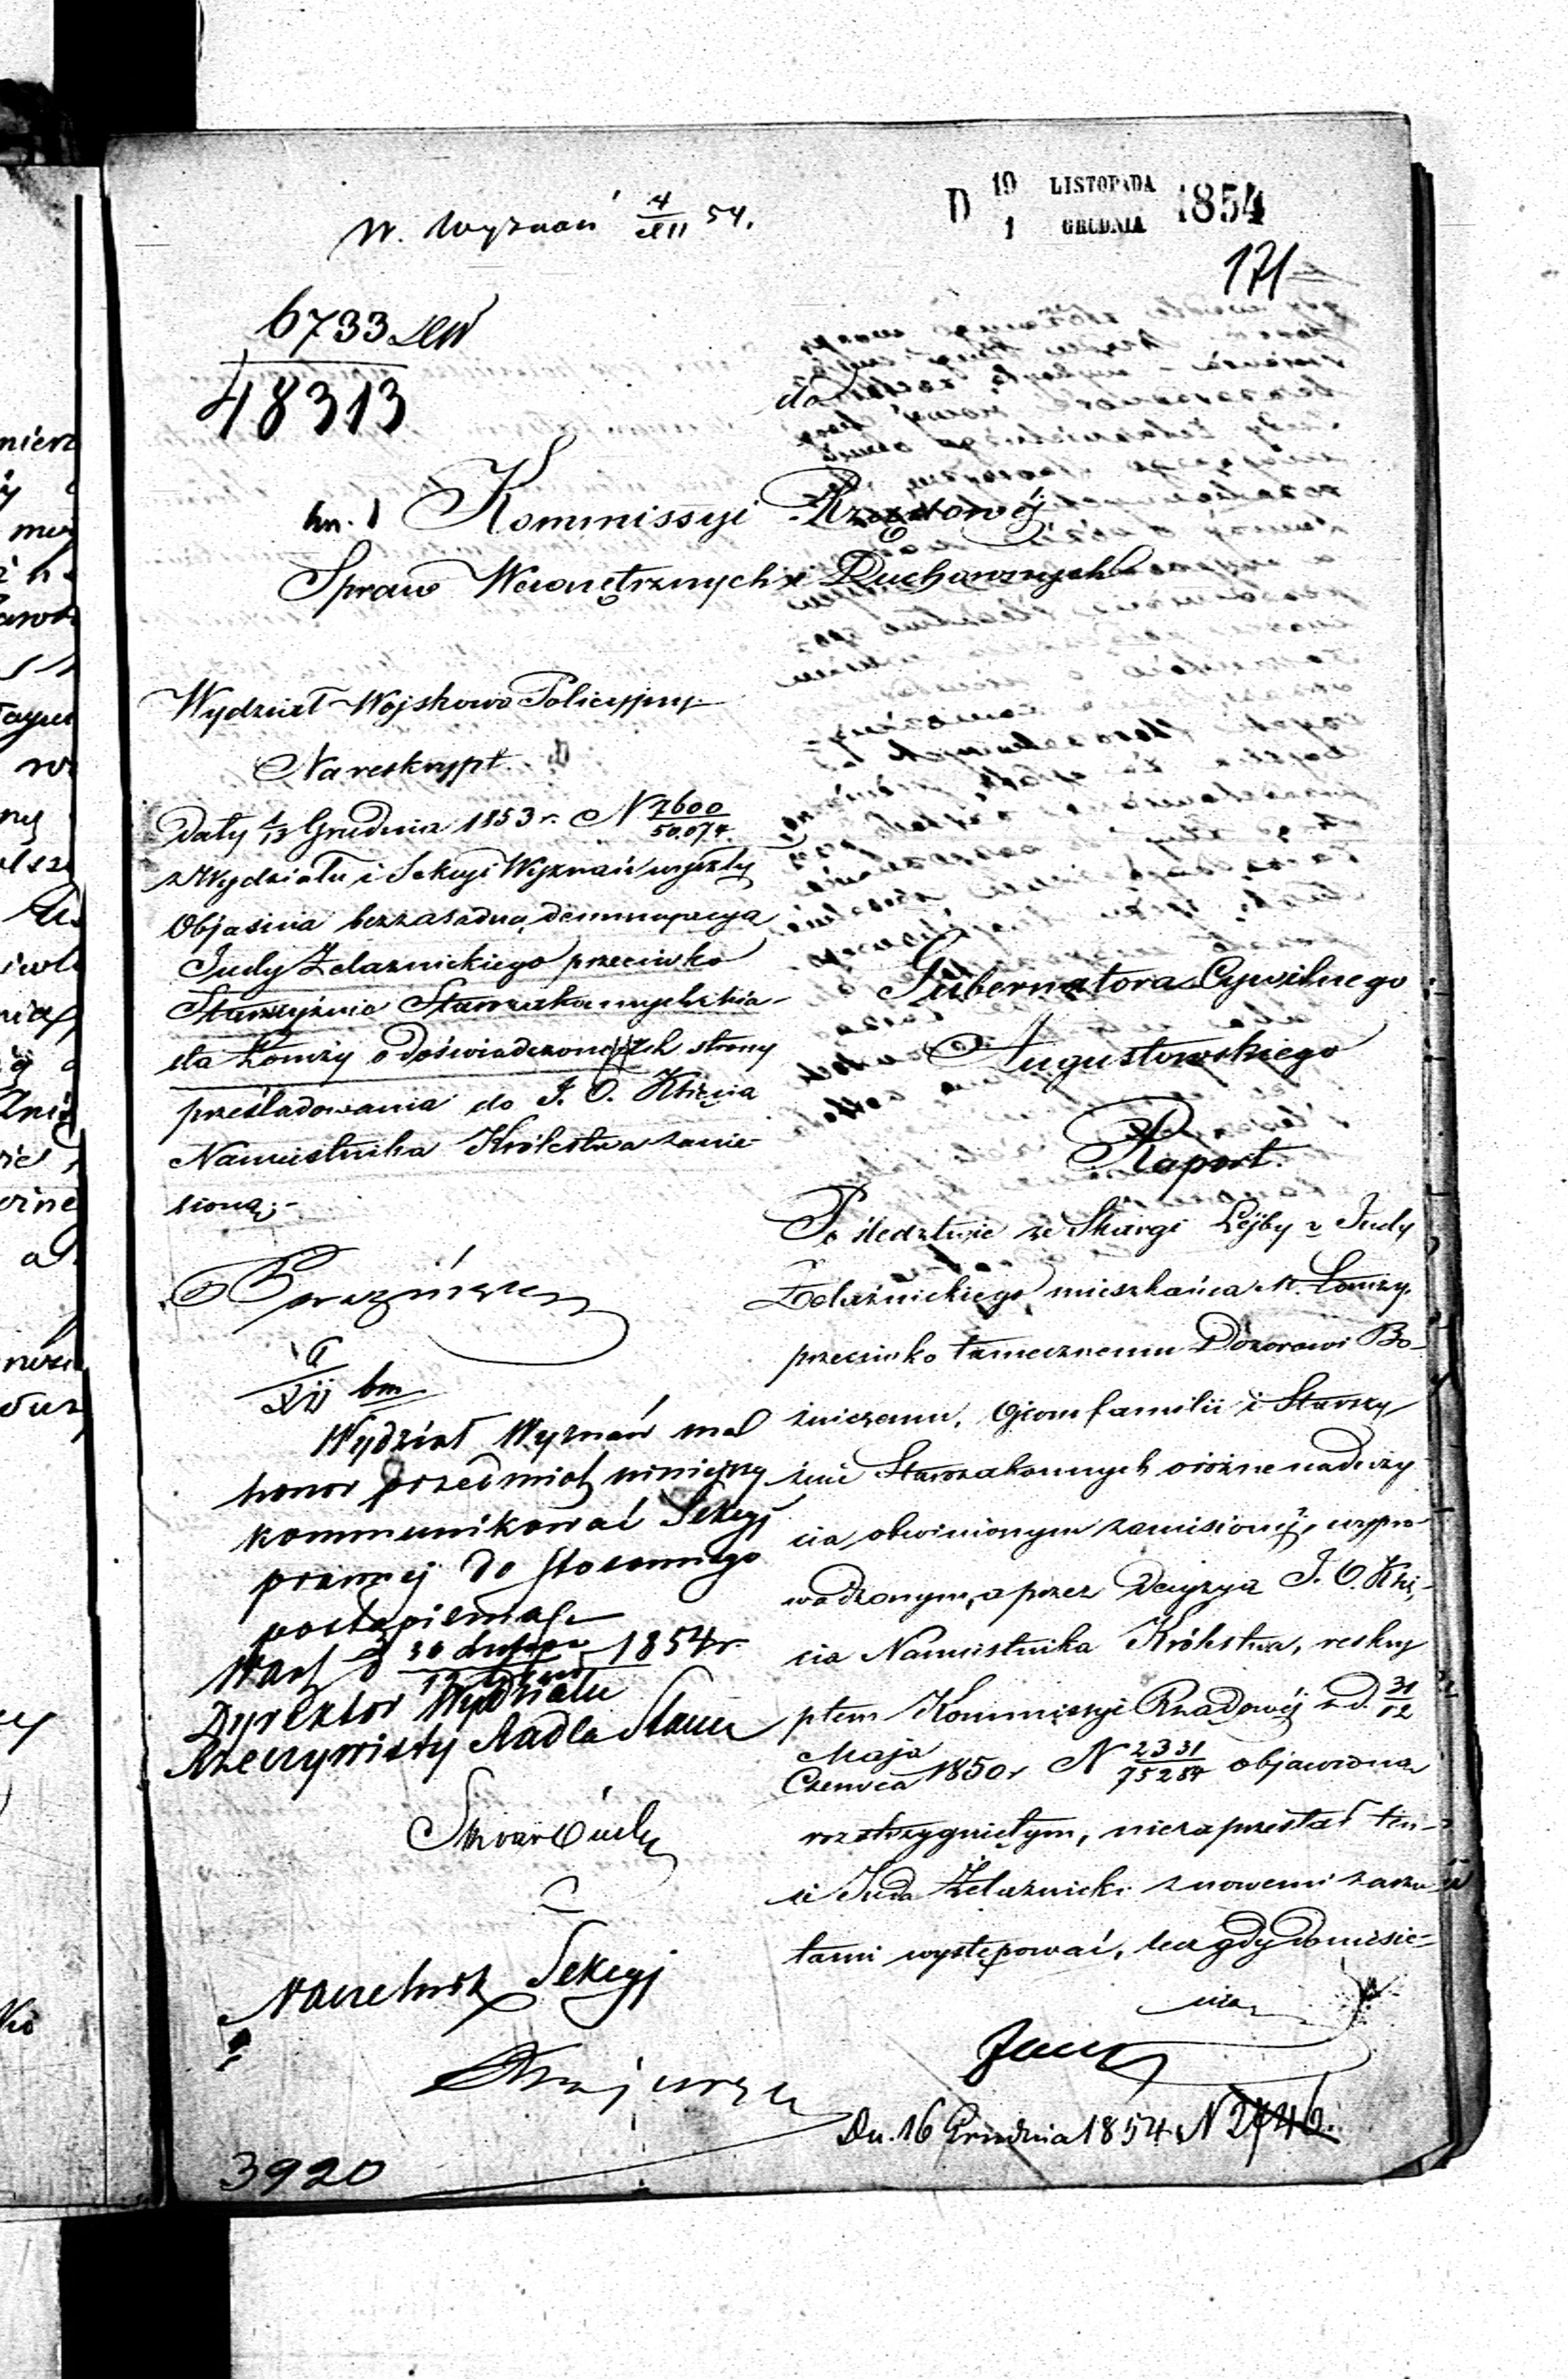 W. Wyznań 4/XII 54.
D 19 LISTOPADA 1854
1 GRUDNIA
171
6733 
48313
do
Kommissyi Rządowéj
Spraw Wewnętrznych i Duchownych
Wydział Wojskowo Policyjny
Na reskrypt
Daty 1/13 Grudnia 1853 r. N 7600/50.074
z Wydziału i Sekcyi Wyznań wyszły
Objaśnia bezzasadną denuncyacyą
Judy Żelaznickiego przeciwko
Starszyźnie Starozakonnych mia-
sta Łomży o doświadczone z ich strony
prześladowania do J. O. Księcia
Namiestnika Królestwa zanie-
sioną.-
Gubernatora Cywilnego
Augustowskiego
Raport.
Po śledztwie ze Skargi Lejby v Judy
Żelaźnickiego mieszkańca M. Łomży
przeciwko tamecznemu Dozorowi Bo-
żniczemu, familii i Starszy
źnie Starozakonnych o różne naduży
cia obwinionym zaniesionéj, wypro
wadzonym, a przez Decyzyą J. O. Księ-
cia Namiestnika Królestwa, reskry
ptem Kommissyi Rządowéj z d. 31/12
Maja
Czerwca 1850 r N 2331/75284 objawioną
rozstrzygniętym, niezaprzestał ten-
że Juda Żelaźnicki z nowemi zarzu
tami występować, lecz gdy doniesie-
nia
XII bm
Wydział Wyznań ma
honor przedmiot niniejszy
kommunikować Sekcyi
prawnej do stosownego
postąpienia
Warsz d 1854 r.
Dyrektor Wydziału
Rzeczywisty Radca Stanu
Naczelnik Sekcyi
Dn. 16 Grudnia 1854 N 2746.
3920